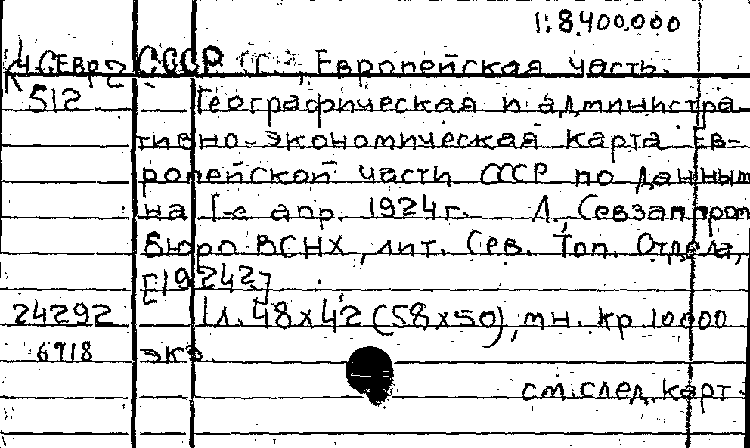 1:8.400.000
СССР Европейская часть.
512 Географическая и администра
тивно-экономическая карта Ев-
ропейской части СССР по данным
на I-е апр. 1924 г. Л., Севзаппром
бюро ВСНХ, лит. Сев. Топ. Отдела,
[1924?]
24292 1 л. 48х42 (58х50), мн. кр. 10000
6918 экз.
см. след. карт.